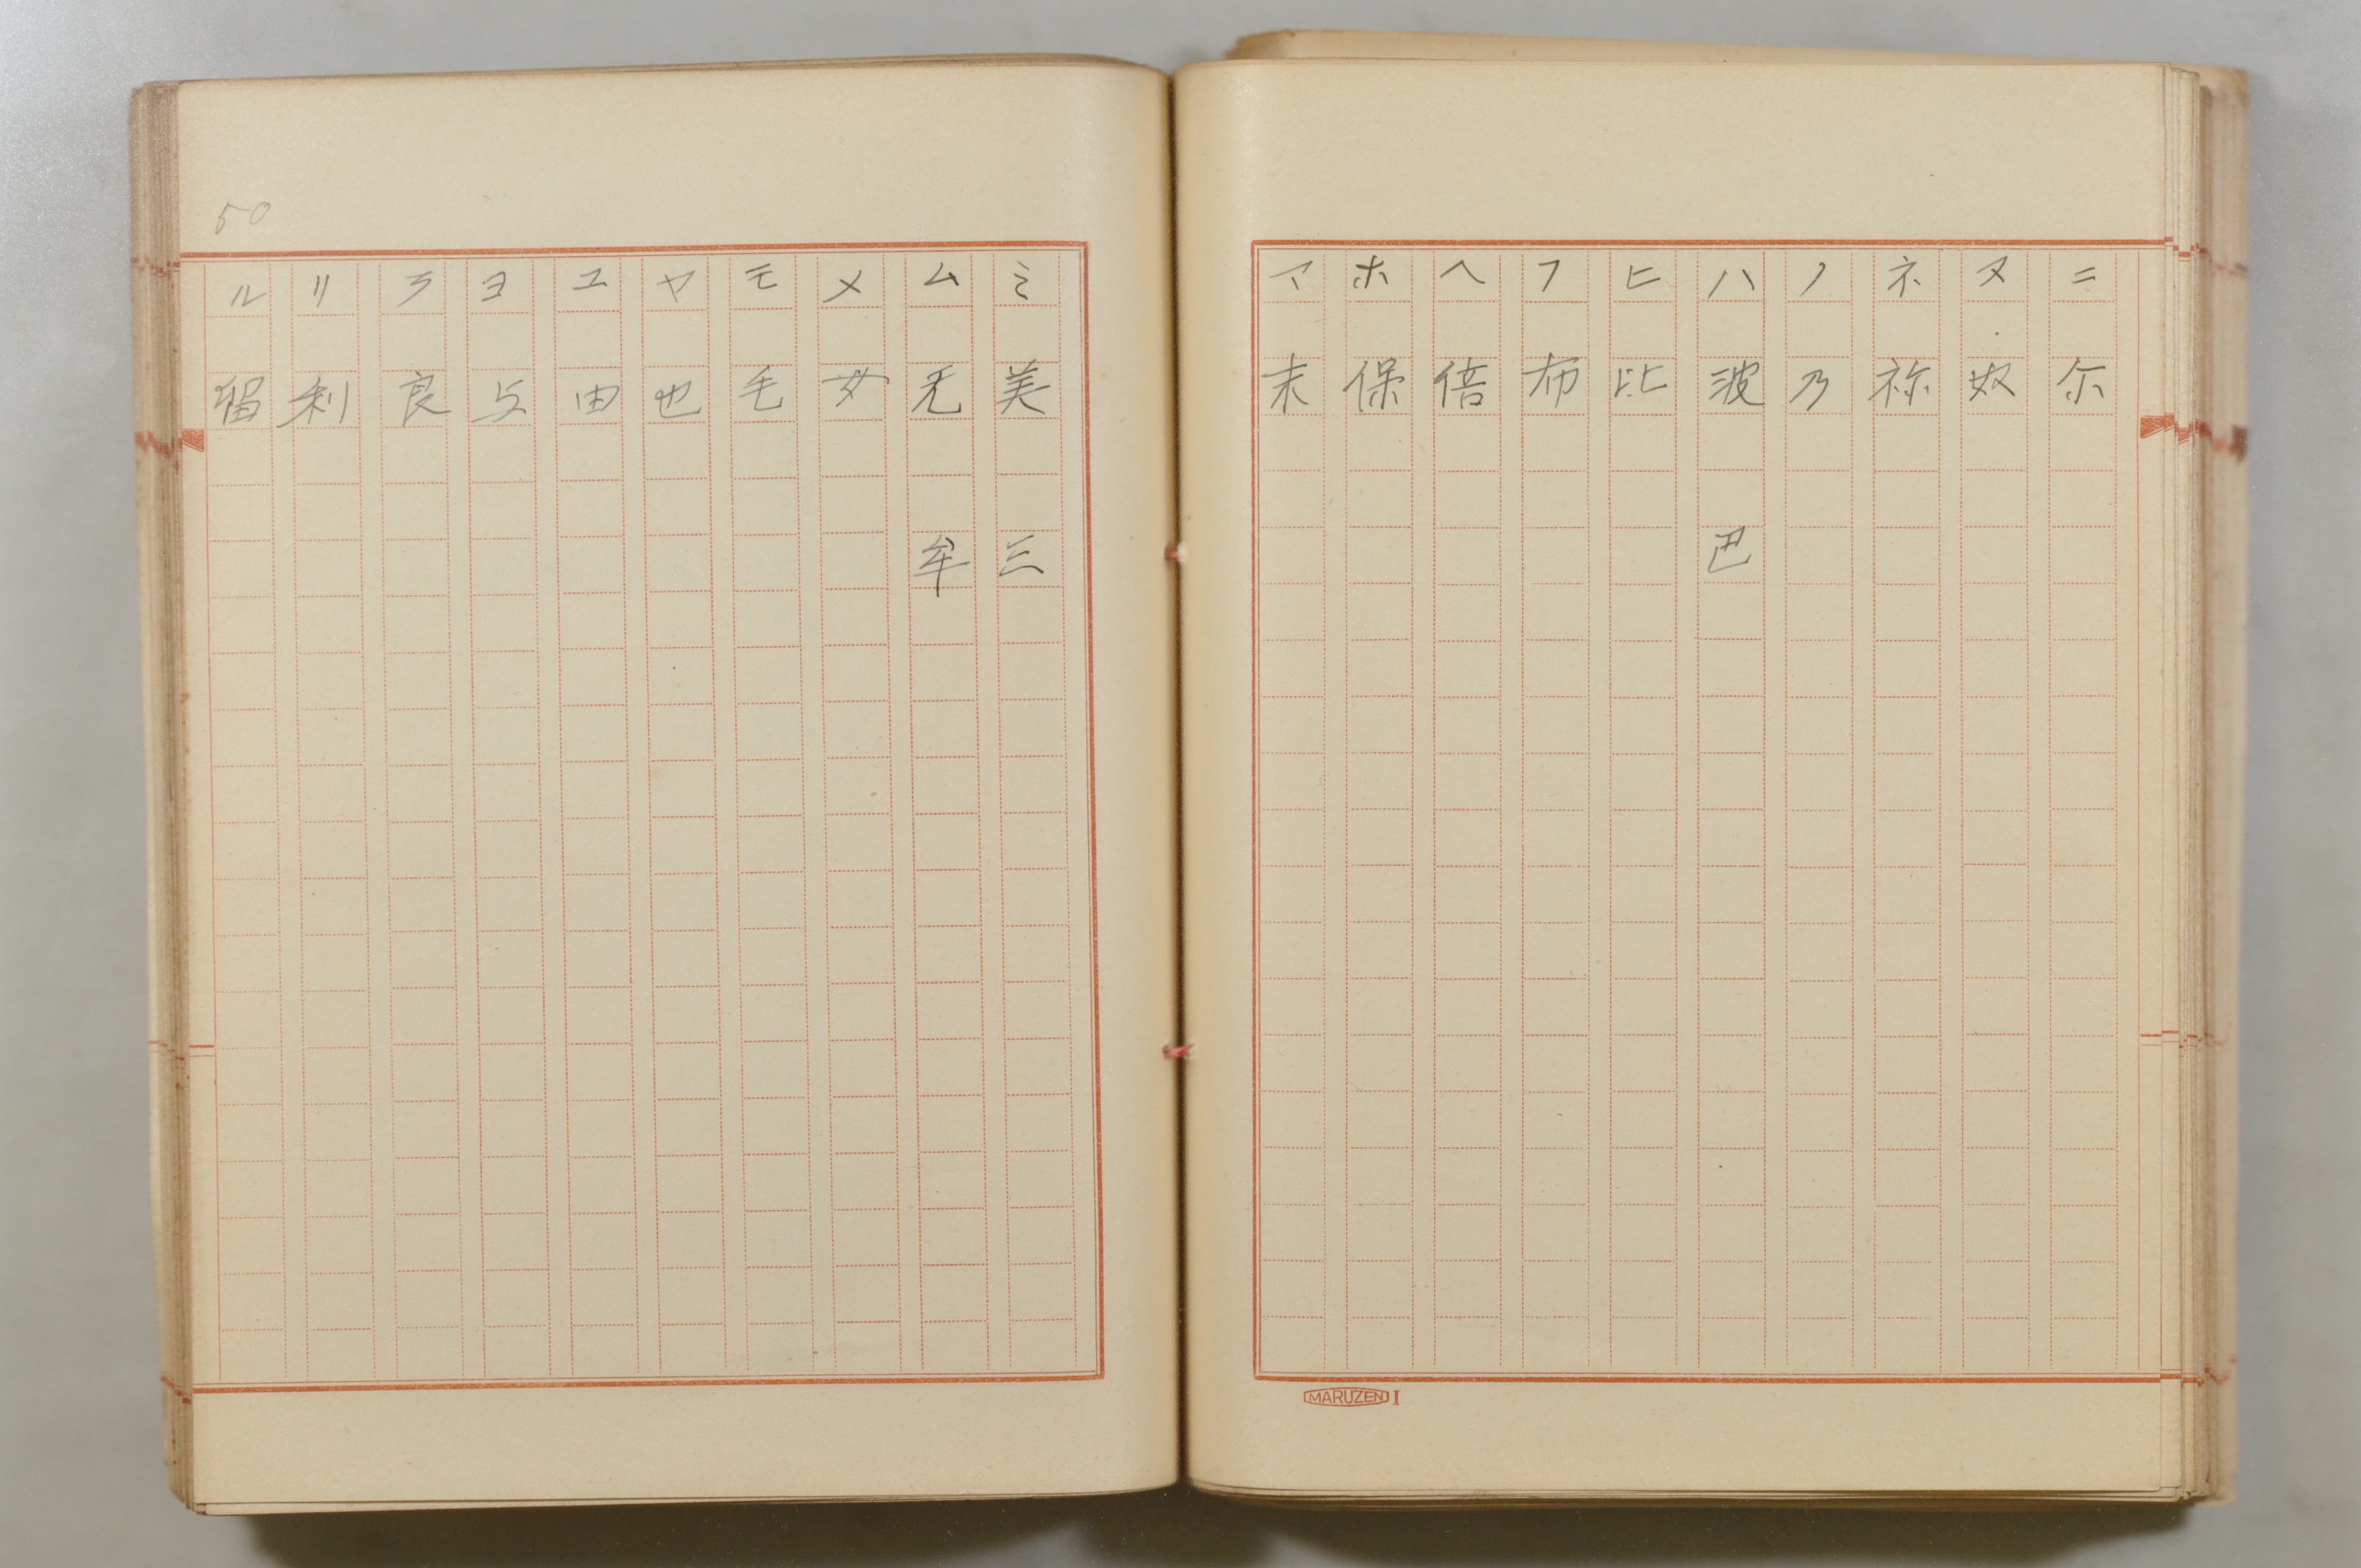 ニ 尓
ヌ 奴
ネ 祢
ノ 乃
ハ 波 巴
ヒ 比
フ 布
ヘ 倍
ホ 保
マ 末
MARUZEN I
50
ミ 美 三
ム 无 牟
メ 女
モ 毛
ヤ 也
ユ 由
ヨ 与
ラ 良
リ 利
ル 留